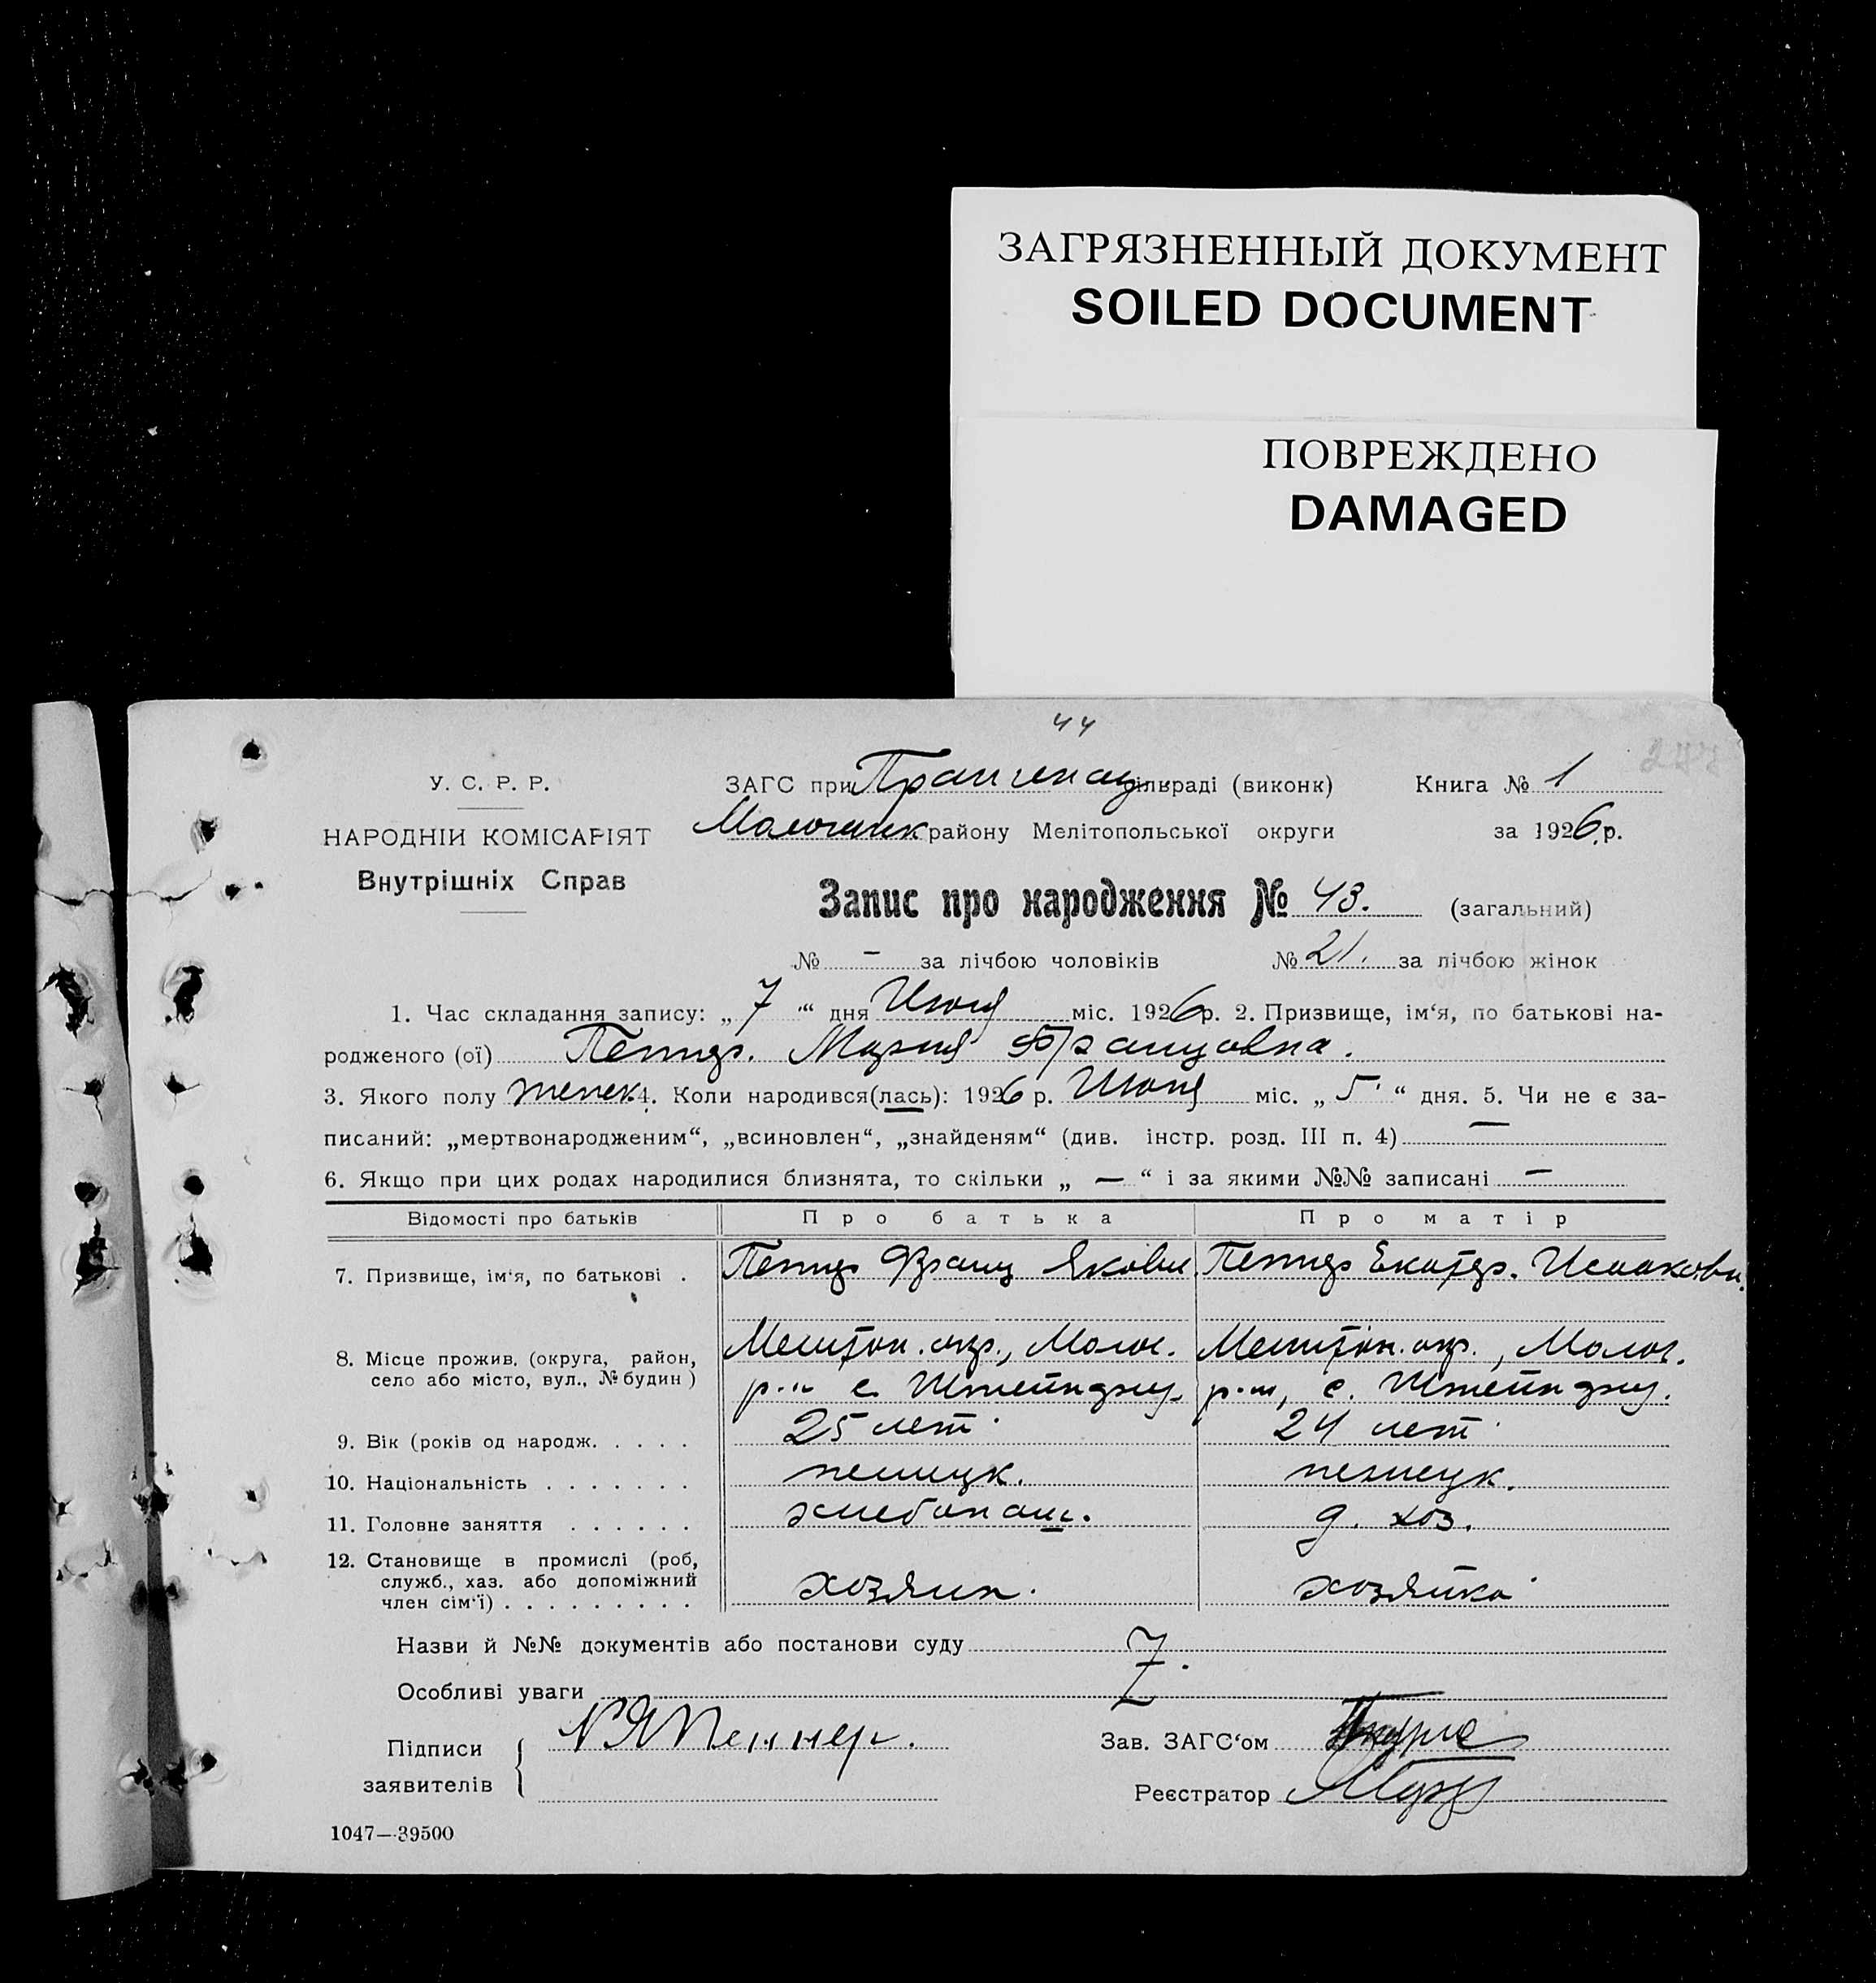 ЗАГРЯЗНЕННЫЙ ДОКУМЕНТ
SOILED DOCUMENT
ПОВРЕЖДЕНО
DAMAGED
44
277
У. С. Р. Р.
ЗАГС при Прангенау сільраді (виконк)
Книга № 1
НАРОДНІЙ КОМІСАРІЯТ
Молочанск району Мелітопольської округи
за 1926 р.
Внутрішніх Справ
Запис про народження № 43. (загальний)
№ — за лічбою чоловіків № 21. за лічбою жінок
1. Час складання запису: „7“ дня Июля міс. 1926 р. 2. Призвище, ім‘я, по батькові на-
родженого (ої) Пеннер. Мария Францовна.
3. Якого полу женск. 4. Коли народився(лась): 1926 р. Июля міс. „5“ дня. 5. Чи не є за-
писаний: „мертвонародженим“, „всиновлен“, „знайденям“ (див. інстр. розд. III п. 4) —
6. Якщо при цих родах народилися близнята, то скільки „ — “ і за якими №№ записані —
Відомості про батьків Про батька Про матір
7. Призвище, ім‘я, по батькові . Пеннер ФранцЯкови. Пеннер Екатер. Исааковн.
8. Місце прожив. (округа, район, Мелитоп. окр., Молоч. Мелитоп. окр., Молоч.
село або місто, вул., № будин) р-н с. Штейнфельд. р-н, с. Штейнфельд.
9. Вік (років од народж. . . . . 25 лет 24 лет
10. Національність . . . . . . . немецк. немецк.
11. Головне заняття . . . . . . хлебопаш. д. хоз.
12. Становище в промислі (роб,
служб., хаз. або допоміжний хозяин. хозяйка
член сім‘ї) . . . . . . . . .
Назви й №№ документів або постанови суду
Особливі уваги
Підписи
заявителів
Пеннер.
Зав. ЗАГС‘ом
Реєстратор
1047—39500